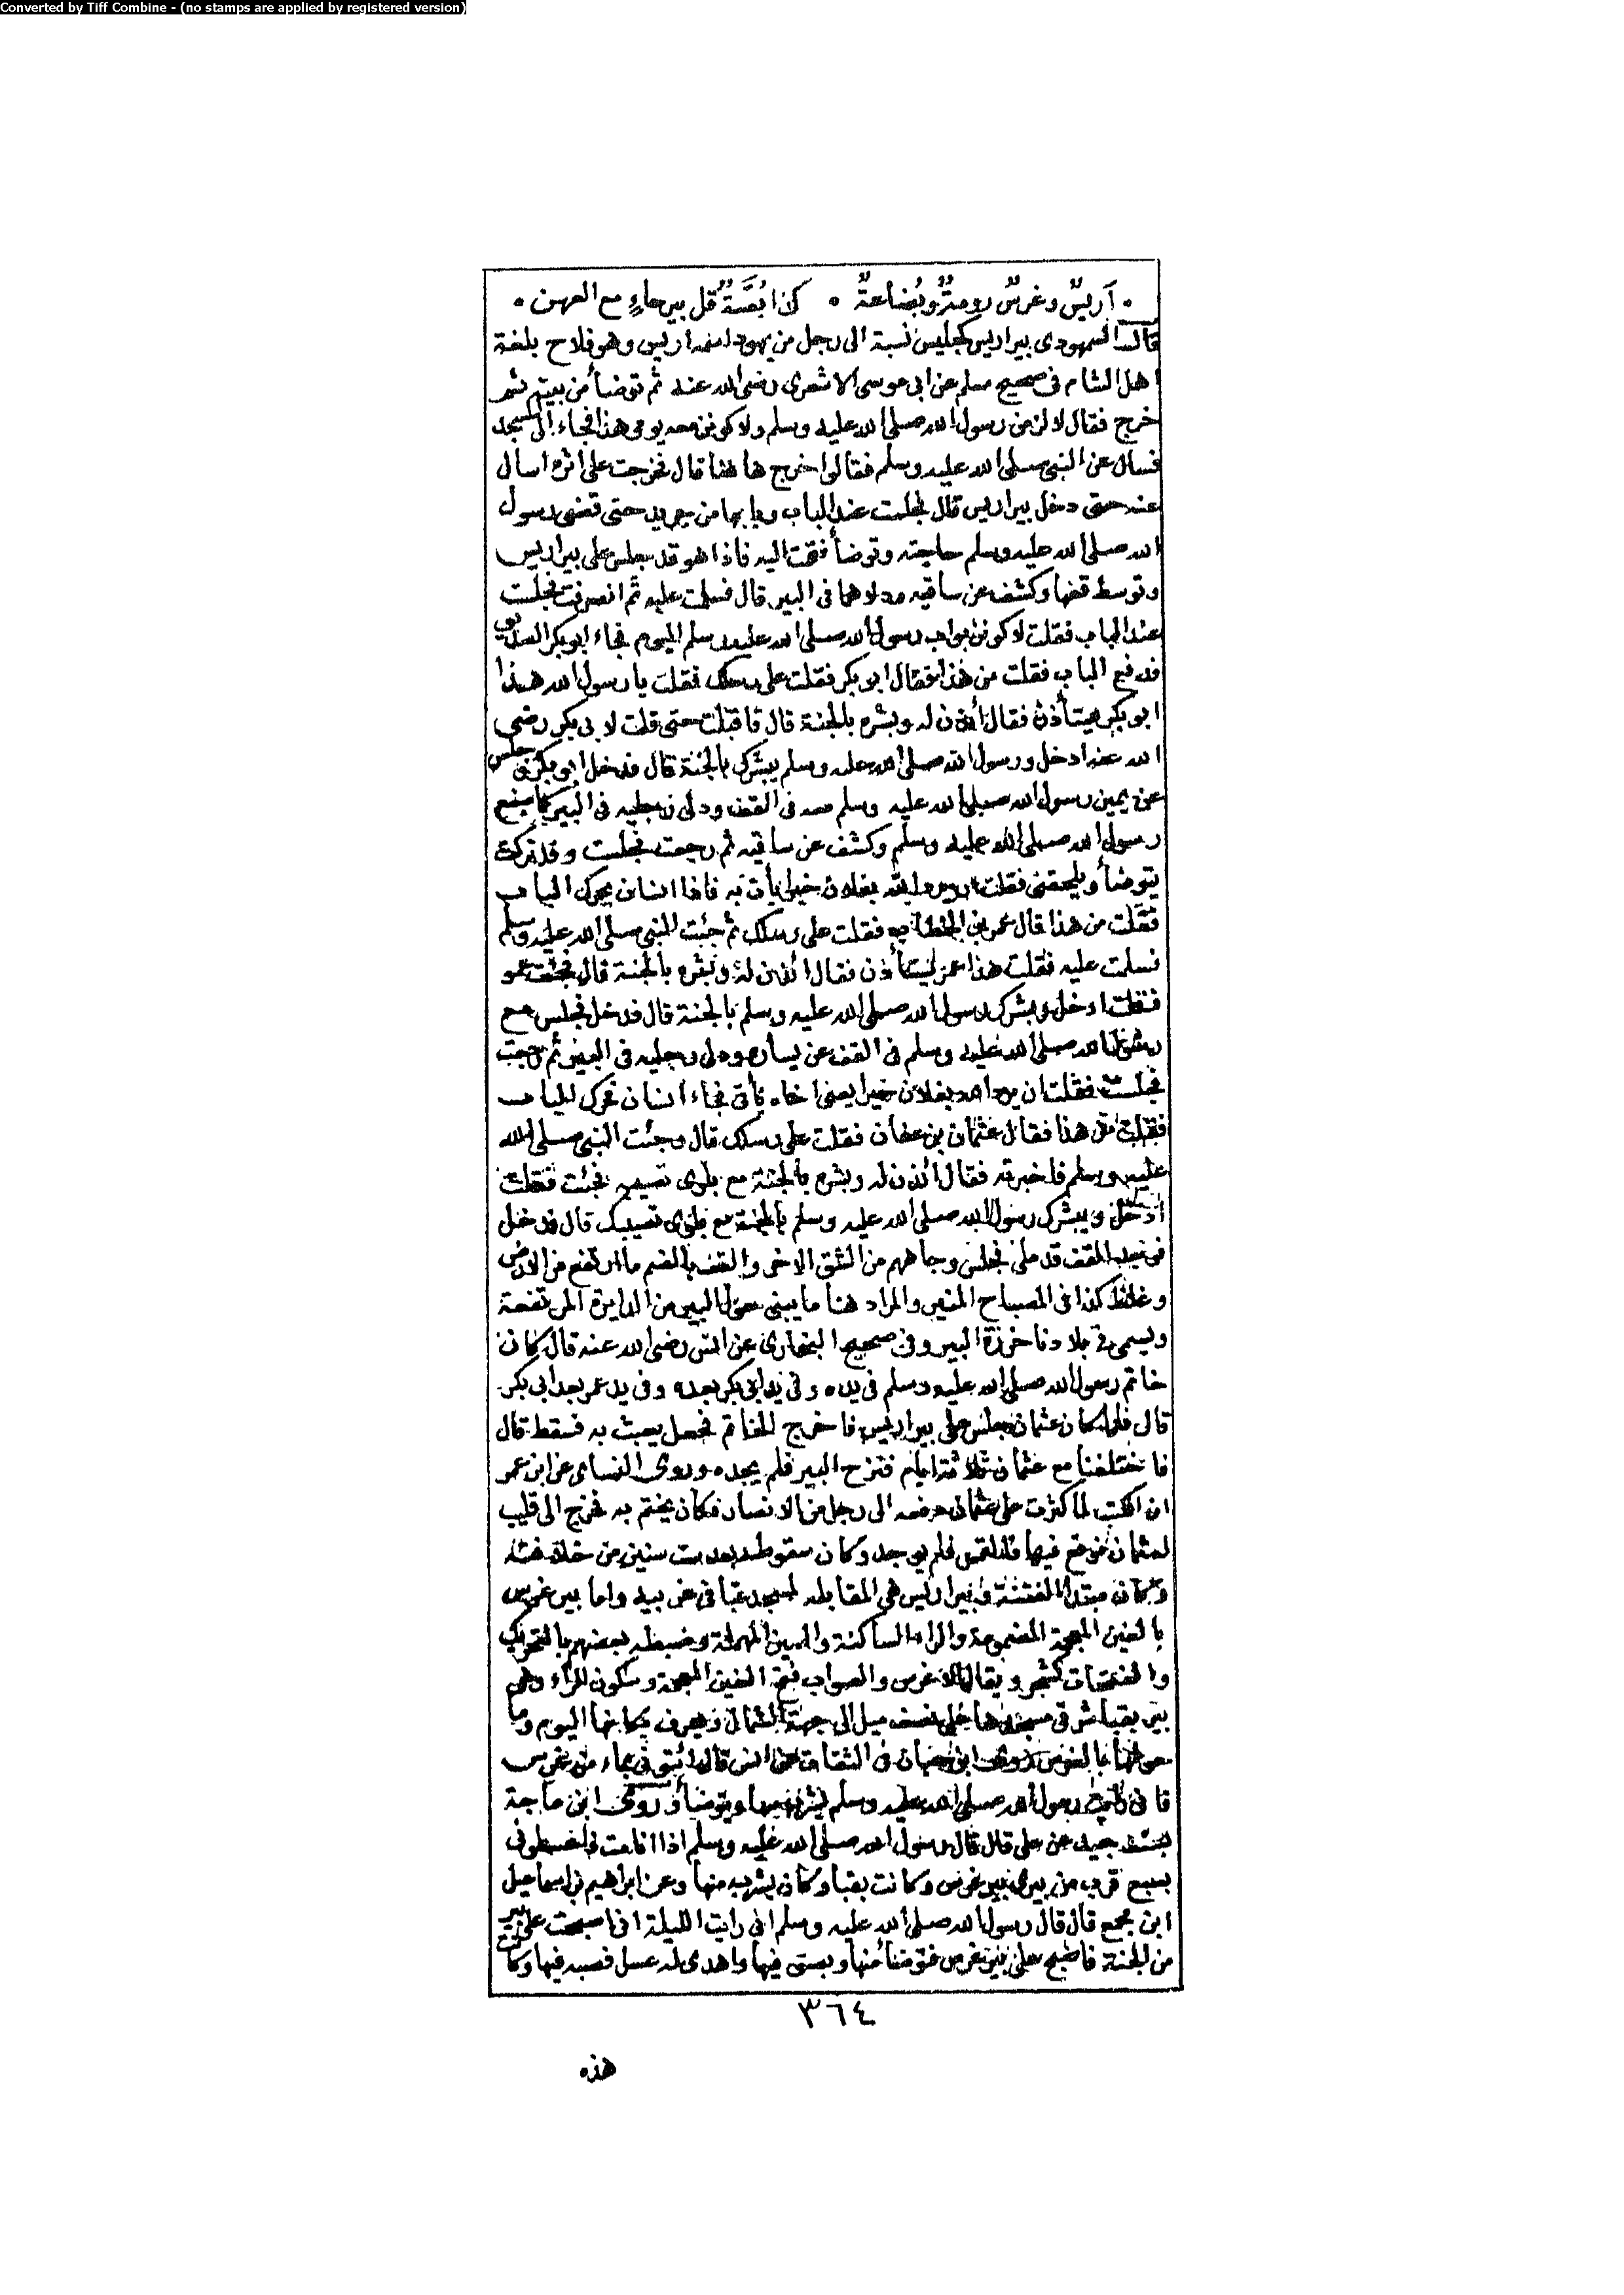 Converted by Tiff Combine - (no stamps are applied by registered version)
• أريسٌ وغرسٌ رومةٌ وبُضاعةٌ • كذا بُصَّةٌ قل بيرحاءٍ مع العهن •
قال السمهودى بيراريس كجليس نسبة الى رجل من يهود اسمه اريس وهو فلاح بلغة
اهل الشام فى صحيح مسلم عن ابى موسى الاشعرى رضى الله عنه ثم توضأ من بيته ثم
خرج فقال لالزمن رسول الله صلى الله عليه وسلم ولاكونن معه يومى هذا فجاء الى المسجد
فسال عن النبى صلى الله عليه وسلم فقالوا خرج هاهنا قال فخرجت على اثره اسال
عنه حتى دخل بيراريس قال فجلست عند الباب وبابها من جريد حتى قضى رسول
الله صلى الله عليه وسلم حاجته وتوضأ فقمت اليه فاذا هو قد جلس على بيراريس
وتوسط قفها وكشف عن ساقيه ودلاهما فى البير قال فسلمت عليه ثم انصرفت فجلست
عند الباب فقلت لاكونن بواب رسول الله صلى الله عليه وسلم اليوم فجاء ابوبكر الصديق
فدفع الباب فقلت من هذا فقال ابوبكر فقلت على رسلك فقلت يا رسول الله هذا
ابوبكر يستأذن فقال أئذن له وبشره بالجنة قال فاقبلت حتى قلت لابى بكر رضى
الله عنه ادخل ورسول الله صلى الله عليه وسلم يبشرك بالجنة قال فدخل ابوبكر جلس
عن يمين رسول الله صلى الله عليه وسلم معه فى القف ودلى رجليه فى البير كما صنع
رسول الله صلى الله عليه وسلم وكشف عن ساقيه ثم رجعت فجلست وقد تركت
يتوضأ ويلحقنى فقلت يرد الله بفلان خيرا يأت به فاذا انسان يحرك الباب
فقلت من هذا قال عمر بن الخطاب فقلت على رسلك ثم جئت النبى صلى الله عليه وسلم
فسلمت عليه فقلت هذا عمر يستأذن فقال ائذن له وبشره بالجنة قال فجئت عمر
فقلت ادخل وبشرك رسول الله صلى الله عليه وسلم بالجنة قال فدخل فجلس مع
رسول الله صلى الله عليه وسلم فى القف عن يساره ودلى رجليه فى البير ثم رجعت
فجلست فقلت ان يرد الله بفلان خيرا يعنى اخاه يأتى فجاء انسان فحرك الباب
فقلت من هذا فقال عثمان بن عفان فقلت على رسلك قال وجئت النبى صلى الله
عليه وسلم فاخبرته فقال ائذن له وبشره بالجنة مع بلوى تصيبه فجئت فقلت
ادخل ويبشرك رسول الله صلى الله عليه وسلم بالجنة مع بلوى تصيبك قال فدخل
فوجد القف قد ملئ فجلس وجاههم من الشق الاخر والقف بالضم ما ارتفع من الارض
وغلظ كذا فى المصباح المنير والمراد هنا ما يبنى حول البير من الدايرة المرتفعة
ويسمى فى بلادنا خرزة البير وفى صحيح البخارى عن انس رضى الله عنه قال كان
خاتم رسول الله صلى الله عليه وسلم فى يده وفى يد ابى بكر بعده وفى يد عمر بعد ابى بكر
قال فلما كان عثمان جلس على بيراريس فاخرج الخاتم فجعل يعبث به فسقط قال
فاختلفنا مع عثمان ثلاثة ايام فنزح البير فلم يجده وروى النساى عن ابن عمر
ان الكتب لما كثرت على عثمان دفعه الى رجل من الانصار فكان يختم به فخرج الى قليب
لعثمان فوقع فيها فالتمس فلم يوجد وكان سقوطه بعد ست سنين من خلافته
وكان مبتدا الفتنة وبيراريس هى المقابله لمسجد قبا فى غربيه واما بير غرس
بالغين المعجمة المضمومة والراء الساكنة والسين المهملة وضبطه بعضهم بالتحريك
والفتحات كشجر ويقال الاغرس والصواب فتح الغين المعجمة وسكون الراء وهى
بير بقبا شرقى مسجدها على نصف ميل الى جهة الشمال ويعرف مكانها اليوم وما
حولها بالغرس روى ابن حبان فى الثقات عن انس قال ائتونى بماء من غرس
فانى رأيت رسول الله صلى الله عليه وسلم يشرب منها ويتوضأ وروى ابن ماجة
بسند جيد عن على قال قال رسول الله صلى الله عليه وسلم اذا انا مت فاغسلونى
بسبع قرب من بيرى بير غرس وكانت بقبا وكان يشرب منها وعن ابراهيم بن اسماعيل
ابن مجمع قال قال رسول الله صلى الله عليه وسلم انى رايت الليلة انى اصبحت على بير
من الجنة فاصبح على بير غرس فتوضأ منها وبصق فيها واهدى له عسل فصبه فيها وكانت
٣٦٤
هذه